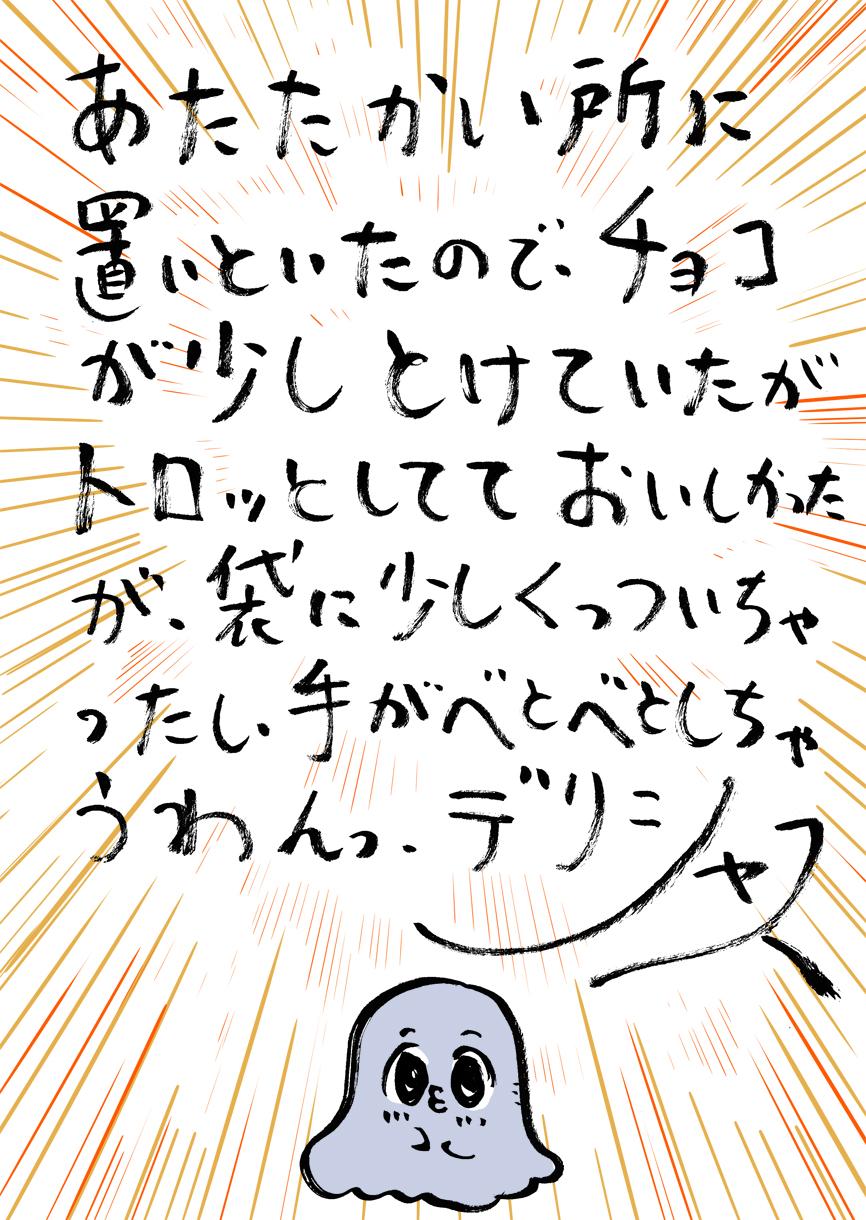 あたたかい所に
置いといたので、チョコ
が少しとけていたが
トロッとしてて おいしかった
が、袋に少しくっついちゃ
ったし、手がべとべとしちゃ
うわんっ、デリシャス